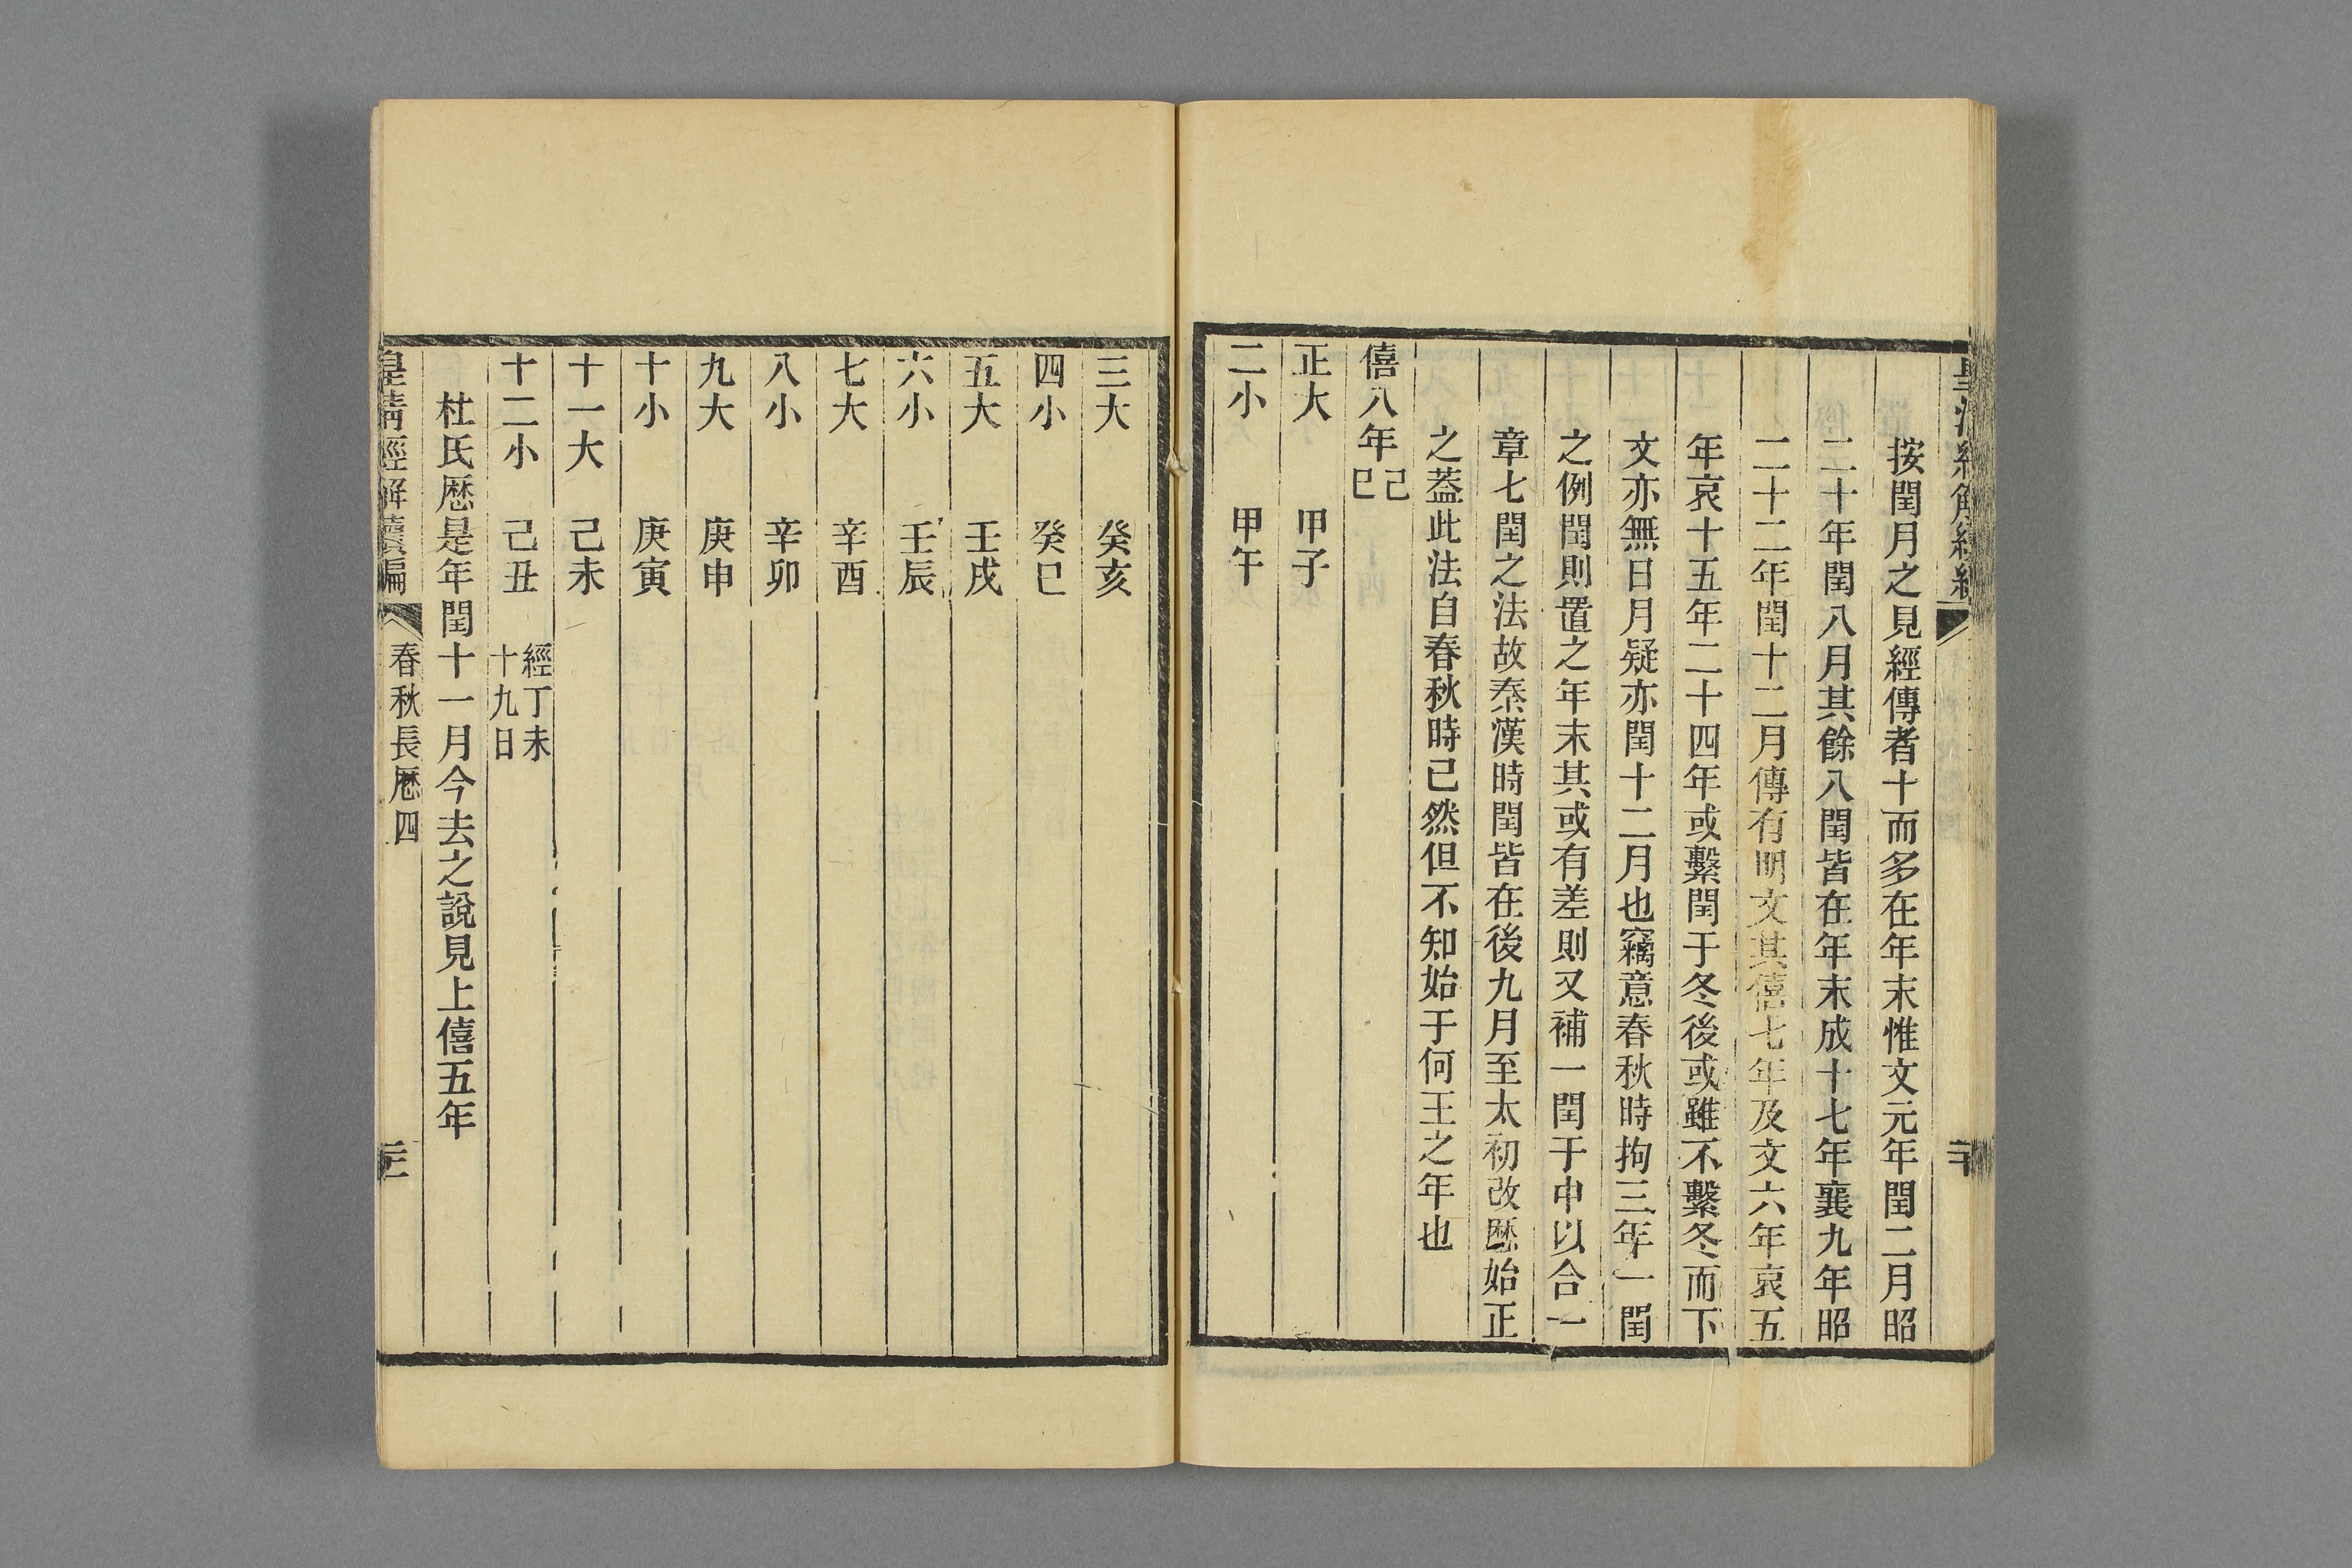 按閏月之見經傳者十而多在年末惟文元年閏二月昭
二十年閏八月其餘八閏皆在年末成十七年襄九年昭
二十二年閏十二月傳有明文其僖七年及文六年哀五
年哀十五年二十四年或繫閏于冬後或雖不繫冬而下
文亦無日月疑亦閏十二月也竊意春秋時拘三年一閏
之例閏則置之年末其或有差則又補一閏于中以合一
章七閏之法故秦漢時閏皆在後九月至太初改厯始正
之蓋此法自春秋時已然但不知始于何王之年也
僖八年己巳
正大 甲子
二小 甲午
三大 癸亥
四小 癸巳
五大 壬戌
六小 壬辰
七大 辛酉
八小 辛卯
九大 庚申
十小 庚寅
十一大 己未
十二小 己丑 經丁未
十九日
杜氏厯是年閏十一月今去之說見上僖五年
皇清經解續編 春秋長厯四